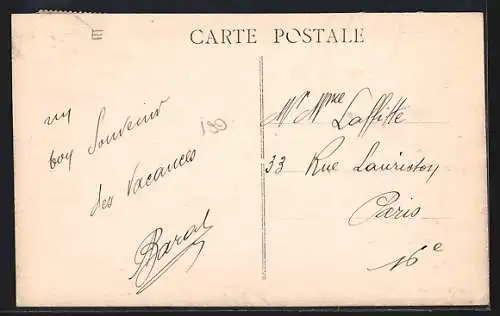 CARTE POSTALE
un
bon Souvenir
des Vacances
Barat
190
Mr Mme
Laffitte
33 Rue Lauriston
Paris
16e